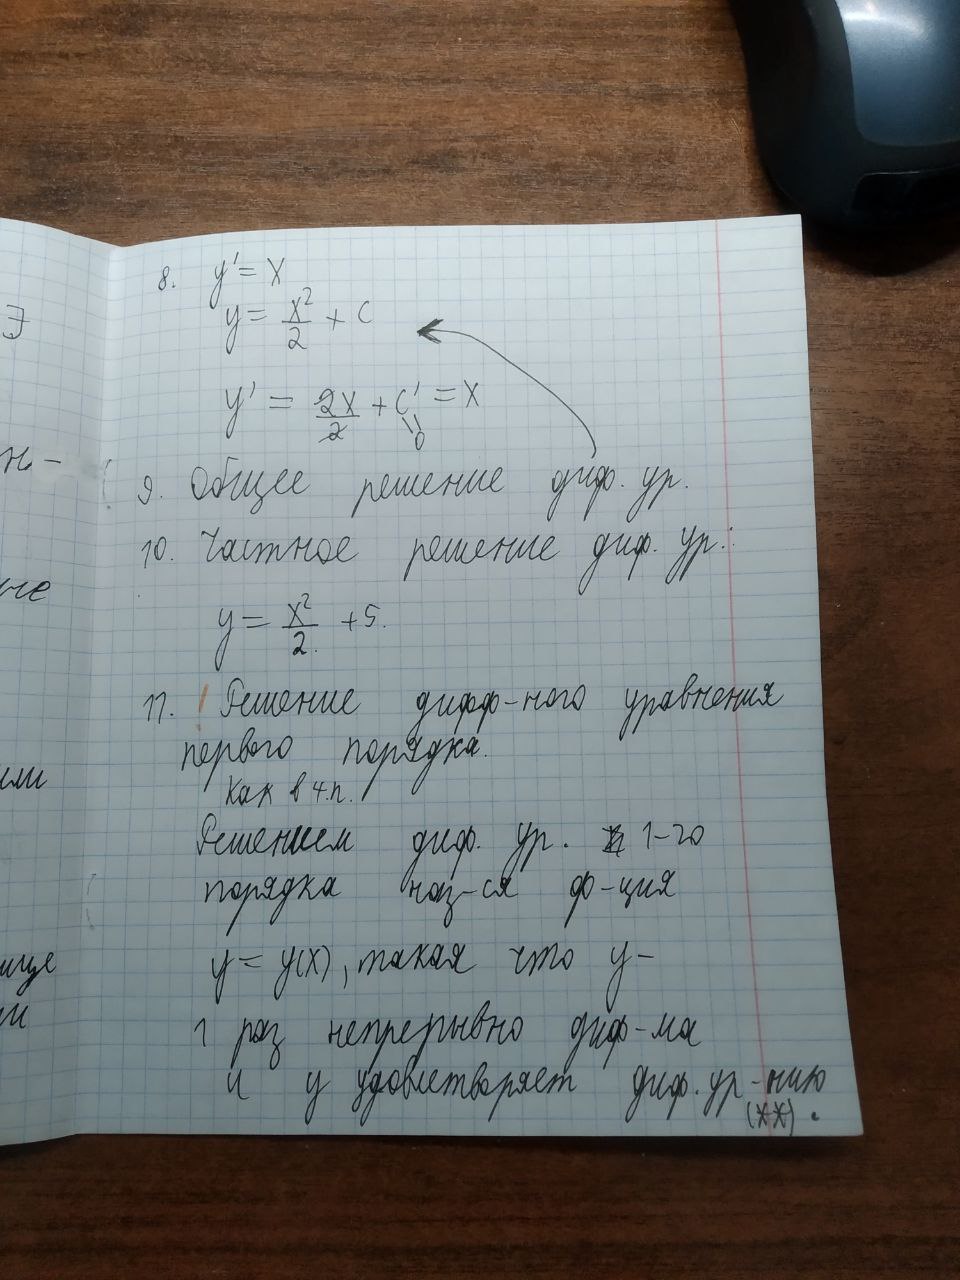 Э
н. –
ые
ли
ище
ли
8. y' = x
y = x²/2 + c
y' = 2x/2 + c' = x
0
9. Общее решение диф. ур.
10. Частное решение диф. ур.:
y = x²/2 + 5.
11. ! Решение дифф-ного уравнения
первого порядка.
Как в 4.п.
Решением диф. ур. 1-го
порядка наз-ся ф-ция
y = y(x), такая что y –
1 раз непрерывно диф-ма
и y удовлетворяет диф. ур-нию
(**).